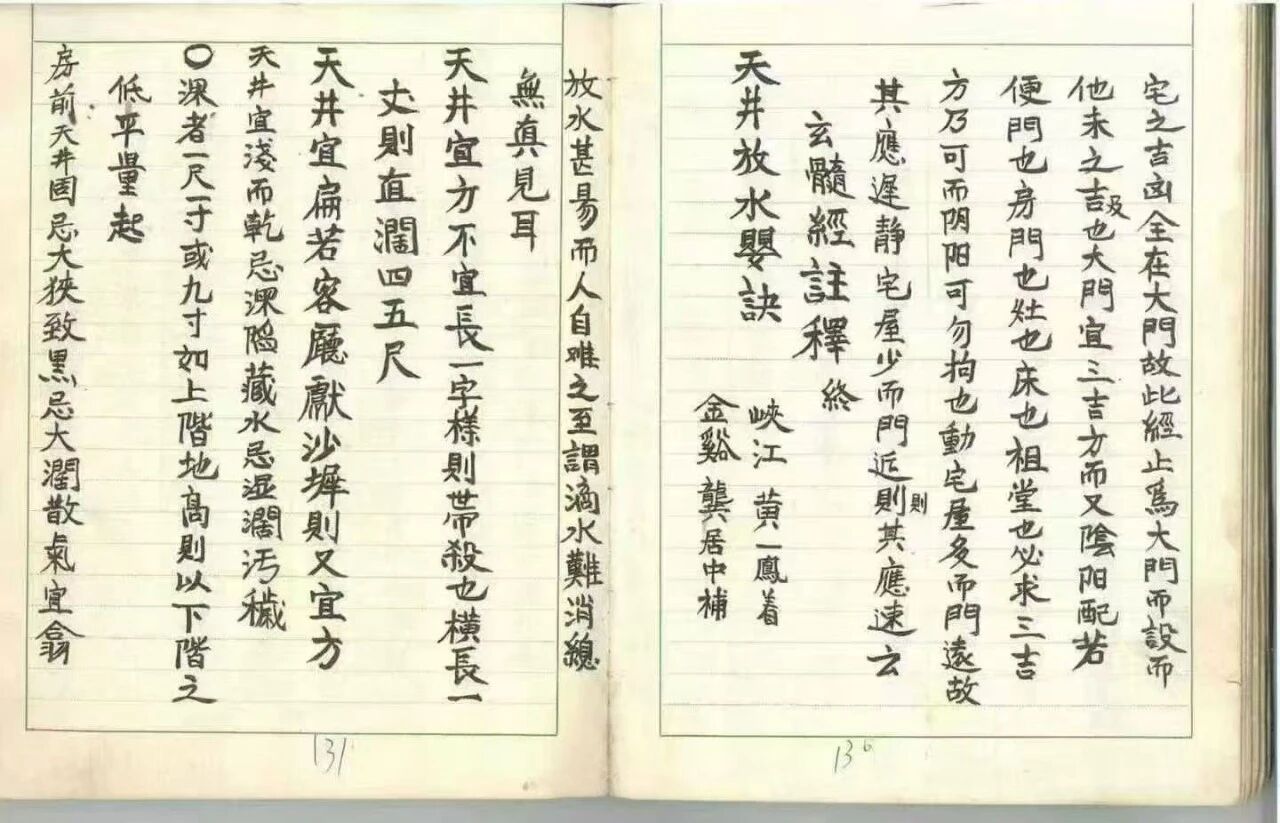 宅之吉凶全在大門故此經止為大門而設而
他未之吉及也大門宜三吉方而又陰阳配若
便門也房門也灶也床也祖堂也必求三吉
方乃可而阴阳可勿拘也動宅屋多而門遠故
其應遲静宅屋少而門近則則其應速云
玄髓經註釋終
峽江黄一鳳着
金谿龔居中補
天井放水嬰訣
136
放水甚易而人自难之至謂滴水難消總
無真見耳
天井宜方不宜長一字様則世帯殺也横長一
丈則直濶四五尺
天井宜扁若客廳獻沙墀則又宜方
天井宜淺而乾忌深隐藏水忌湿濶汚穢
〇深者一尺一寸或九寸如上階地高則以下階之
低平量起
房前天井固忌大狹致黑忌大濶散氣宜翕
131